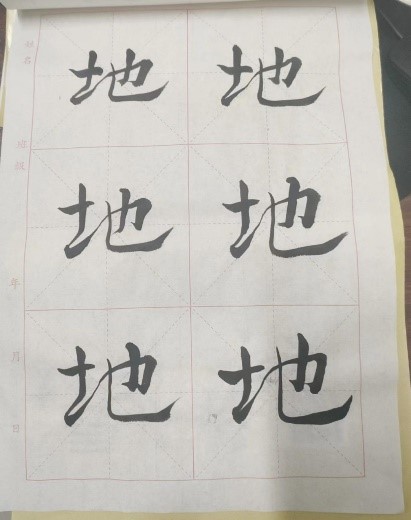 姓名
班级
年
月
日
地 地
地 地
地 地